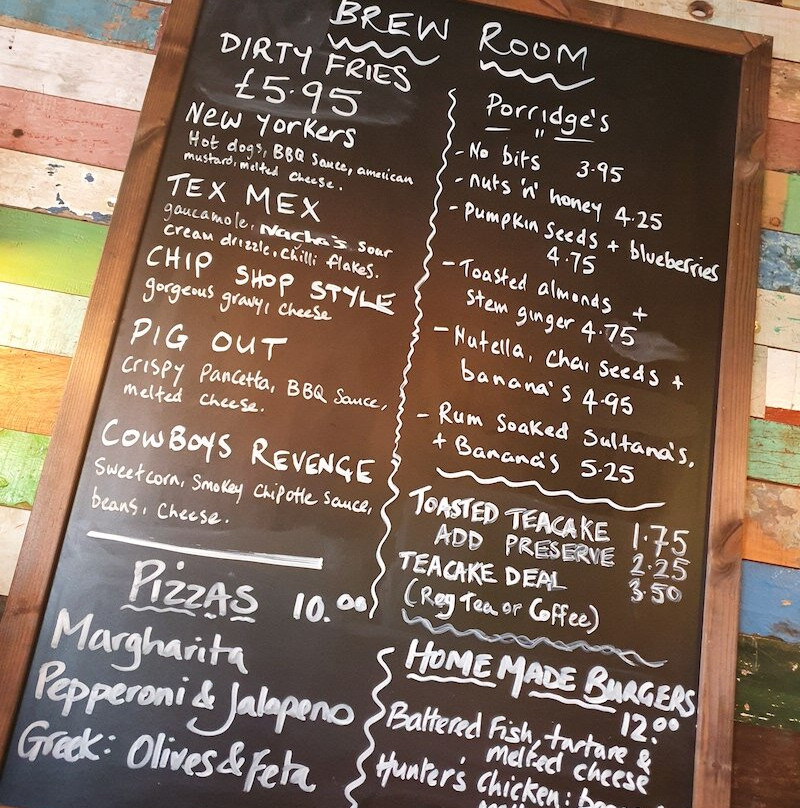 BREW ROOM
DIRTY FRIES
£5.95
New Yorkers
Hot dogs, BBQ Sauce, american
mustard, melted cheese.
TEX MEX
gaucamole, Nacha's sour
cream drizzle, chilli flakes.
CHIP SHOP STYLE
gorgeous gravy, cheese
PIG OUT
crispy Pancetta, BBQ sauce,
melted cheese.
COWBOYS REVENGE
Sweetcorn, Smokey Chipotle sauce,
beans, cheese.
Pizzas 10.00
Margharita
Pepperoni & Jalapeno
Greek: Olives & Feta
Porridge's
- No bits 3.95
- nuts 'n' honey 4.25
- Pumpkin seeds + blueberries
4.75
- Toasted almonds +
stem ginger 4.75
- Nutella, chai seeds +
banana's 4.95
- Rum Soaked Sultana's,
+ Banana's 5.25
TOASTED TEACAKE 1.75
ADD PRESERVE 2.25
TEACAKE DEAL 3.50
(Reg Tea or Coffee)
HOME MADE BURGERS
12.00
Battered Fish, tartare &
melted cheese
Hunter's Chicken: